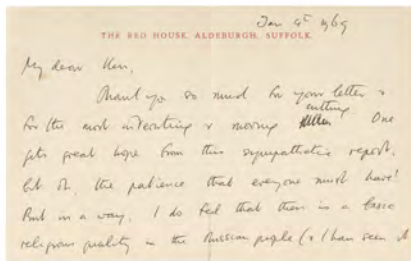 Jan 4th 1969
THE RED HOUSE, ALDEBURGH, SUFFOLK.
My dear Ken,
Thank you so much for your letter &
for the most interesting & moving cutting One
gets great hope from this sympathetic report,
but oh, the patience that everyone must have!
But in a way, I do feel that there is a basic
religious quality in the Russian people (& I have seen it